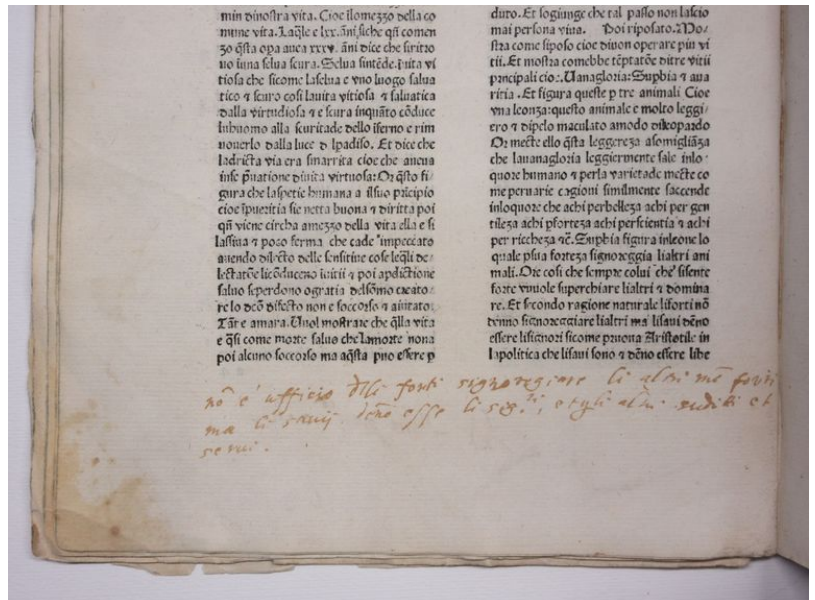 min dinostra vita. Cioe ilomezzo della co
mune vita. Laqłe e lxx. āni siche qn̄ comen
zo q̄sta opa auea xxxv. āni dice che si ritro
uo i una selua scura. Selua sintēde. ī uita vi
tiosa che sicome laselua e vno luogo salua
tico ⁊ scuro cosi lauita vitiosa ⁊ saluatica
dalla virtudiosa ⁊ e scura inquāto cōduce
luhuomo alla scuritade dello iferno e rim
uouerlo dalla luce d lpadiso. Et dice che
ladricta via era smarrita cioe che aueua
inse p̄uatione diuita virtuosa: Or q̄sto fi
gura che laspetie humana a ilsuo p̄ncipio
cioe ī pueritia sie netta buona ⁊ diritta poi
qn̄ viene circha amezzo della vita ella e si
lassiua ⁊ poco ferma che cade impeccato
auendo dilecto delle sensitiue cose leq̄li de
lectatōe licōduceno iuitii ⁊ poi apdictione
saluo seperdono ogratia delsōmo creato
re lo dco̅ difecto non e soccorso ⁊ aiutato:
Tāt e amara. Vuol mostrare che q̄lla vita
e q̄si come morte saluo che lamorte nona
poi alcuno soccorso ma aq̄sta puo essere p
duto. Et sogiunge che tal passo non lascio
mai persona viua. Poi riposato. Mo/
stra come siposo cioe diuon operare piu vi
tii. Et mostra comebbe tēptatōe ditre vitii
principali cioe. Uanagloria: Suphia ⁊ aua
ritia. Et figura queste p tre animali Cioe
vna leonza: questo animale e molto leggi/
ero ⁊ dipelo maculato amodo dileopardo
Or mecte ello q̄sta leggereza asomigliāza
che lauanagloria leggiermente sale inlo
quore humano ⁊ perla varietade mecte co
me peruarie cagioni similmente saccende
inloquore che achi perbelleza achi per gen
tileza achi pforteza achi perscientia ⁊ achi
per riccheza ⁊c̄. Suphia figura inleone lo
quale psua forteza signoreggia lialtri ani
mali. Ore cosi che sempre colui che sisente
forte vuuole superchiare lialtri ⁊ domina
re. Et secondo ragione naturale liforti nō
denno signoreggiare lialtri ma lisaui dēno
essere lisignori sicome pruoua Aristotile in
lapolitica che lisaui sono ⁊ dēno essere libe
nō é ufficio deli forti signoregiare li altri mē forti
ma li sauij dēno esse li sig.ri, e tuti altri sudditi et
serui.